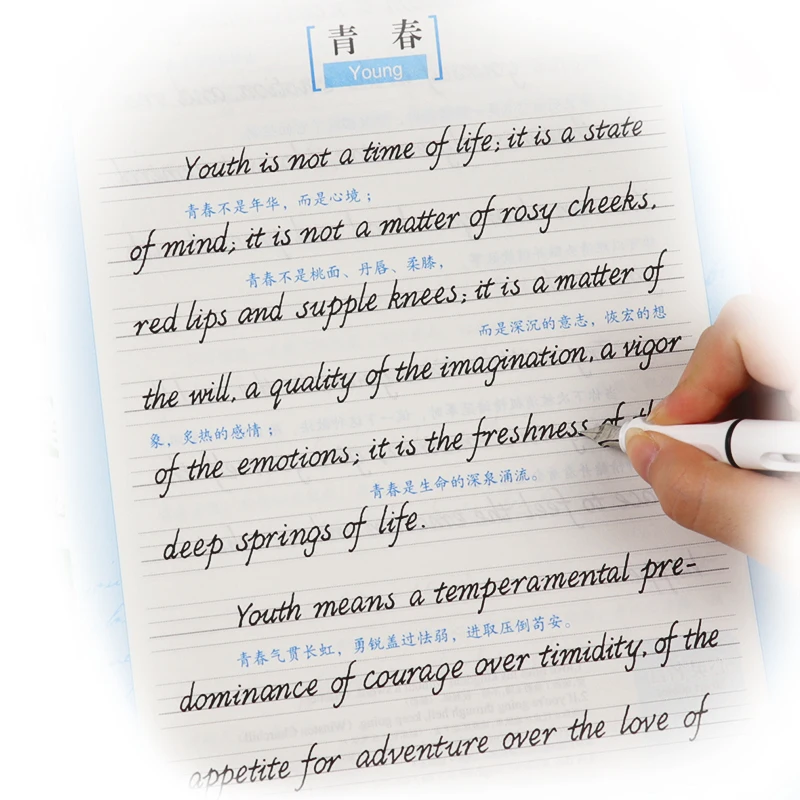 青 春
Young
Youth is not a time of life; it is a state
青春不是年华，而是心境；
of mind; it is not a matter of rosy cheeks,
青春不是桃面、丹唇、柔膝，
red lips and supple knees; it is a matter of
而是深沉的意志，恢宏的想
the will, a quality of the imagination, a vigor
象，炙热的感情；
of the emotions; it is the freshness of
青春是生命的深泉涌流。
deep springs of life.
Youth means a temperamental pre-
青春气贯长虹，勇锐盖过怯弱，进取压倒苟安。
dominance of courage over timidity, of the
appetite for adventure over the love of